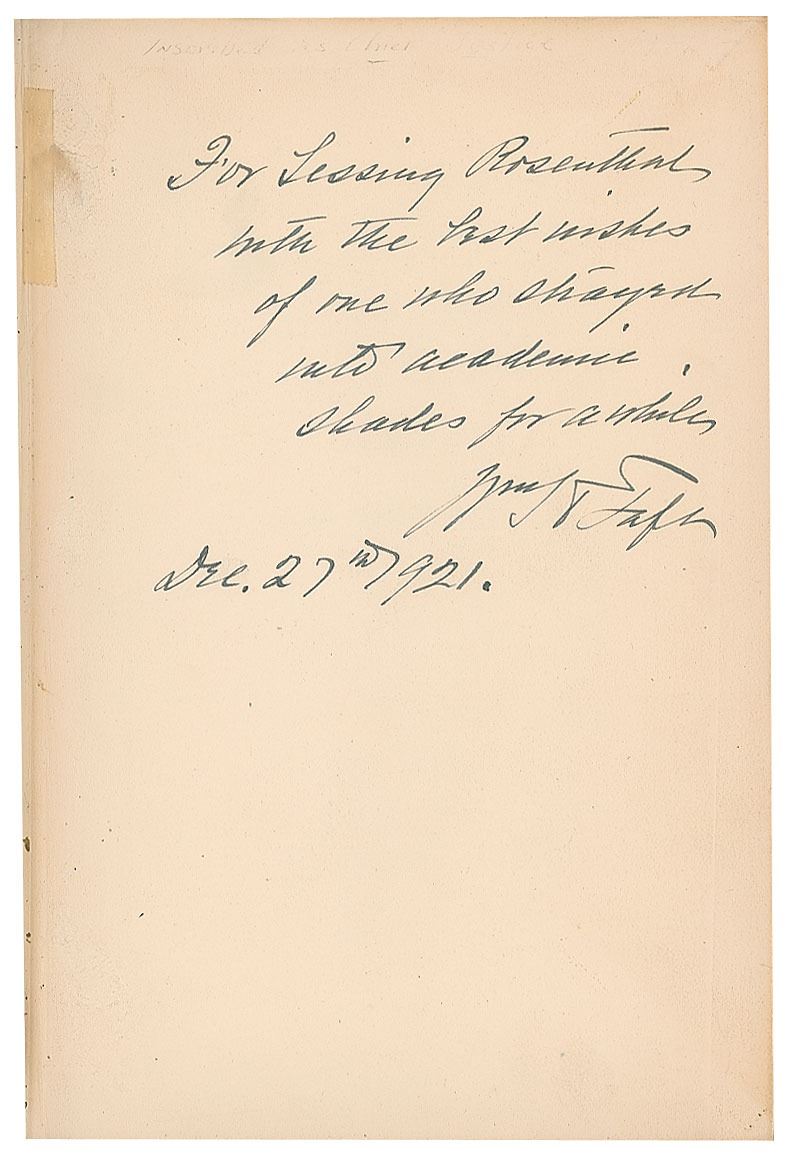 Inscribed as Chief Justice
For Lessing Rosenthal
with the best wishes
of one who strayed
into academic
shades for a while
Wm H Taft
Dec. 27th 1921.